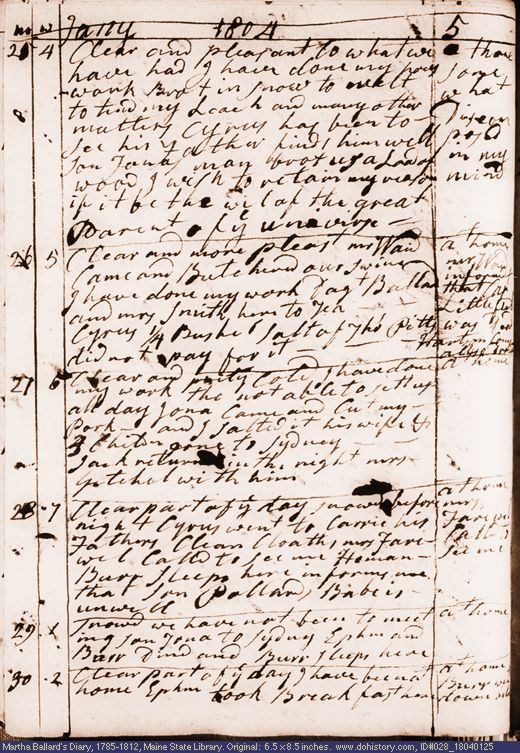 m w Janry 1804 5
25 4 Clear and pleasant to what we at home
have had I have done my hous some
work Brot in snow to melt what
to tend my Leach and many other Discom
8 matters Cyrus has been to posd
see his Father finds him well in my
son Jonas man brot us a Load mind
wood I wish to retain my reason
if it be the wil of the great
Parent of ye univirse
26 5 Clear and more pleast mr Wan at home
Came and Butcherd our swine mr
I have done my work Dagt Ballard informt
and mrs Smith here to Tea that
Cyrus 1/4 Bushel Salt of Tho Pitts Little
did not pay for it was
27 6 Clear and prety Cold I have done at home
my work tho not able to set up
all day Jona Came and Cut my
Pork and I Salted it his wife &
3 Childn gone to Sydney
Jack returnd in the night mrs
Getchel with him
28 7 Clear part of ye day snowd before at home
night Cyrus went to Carrie his mrs
Fathers Clean Cloaths mrs Fare Farewel
wel Calld to see me Heman Calld to
Burr Sleeps here informs me See me
that Son Pollards Babe is
unwell
29 1 Snowd we have not been to meet at home
ing son Jona to Sydny Ephm and
Burr Dind and Burr sleeps here
30 2 Clear part of ye day I have been at at home
home Ephm took Breakfast here Burr
Martha Ballard's Diary, 1785-1812, Maine State Library. Original: 6.5 x 8.5 inches. www.dohistory.com, ID#028_18040125